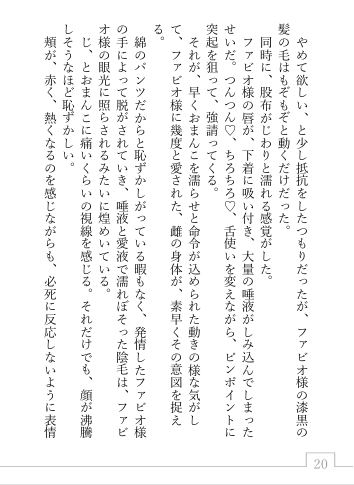 やめて欲しい、と少し抵抗をしたつもりだったが、ファビオ様の漆黒の
髪の毛はもぞもぞと動くだけだった。
同時に、股布がじわりと濡れる感覚がした。
ファビオ様の唇が、下着に吸い付き、大量の唾液がしみ込んでしまった
せいだ。つんつん♡、ちろちろ♡、舌使いを変えながら、ピンポイントに
突起を狙って、強請ってくる。
それが、早くおまんこを濡らせと命令が込められた動きの様な気がし
て、ファビオ様に幾度と愛された、雌の身体が、素早くその意図を捉え
る。
綿のパンツだからと恥ずかしがっている暇もなく、発情したファビオ様
の手によって脱がされていき、唾液と愛液で濡れぼそった陰毛は、ファビ
オ様の眼光に照らされるみたいに煌めいている。
じ、とおまんこに痛いくらいの視線を感じる。それだけでも、顔が沸騰
しそうなほど恥ずかしい。
頬が、赤く、熱くなるのを感じながらも、必死に反応しないように表情
20